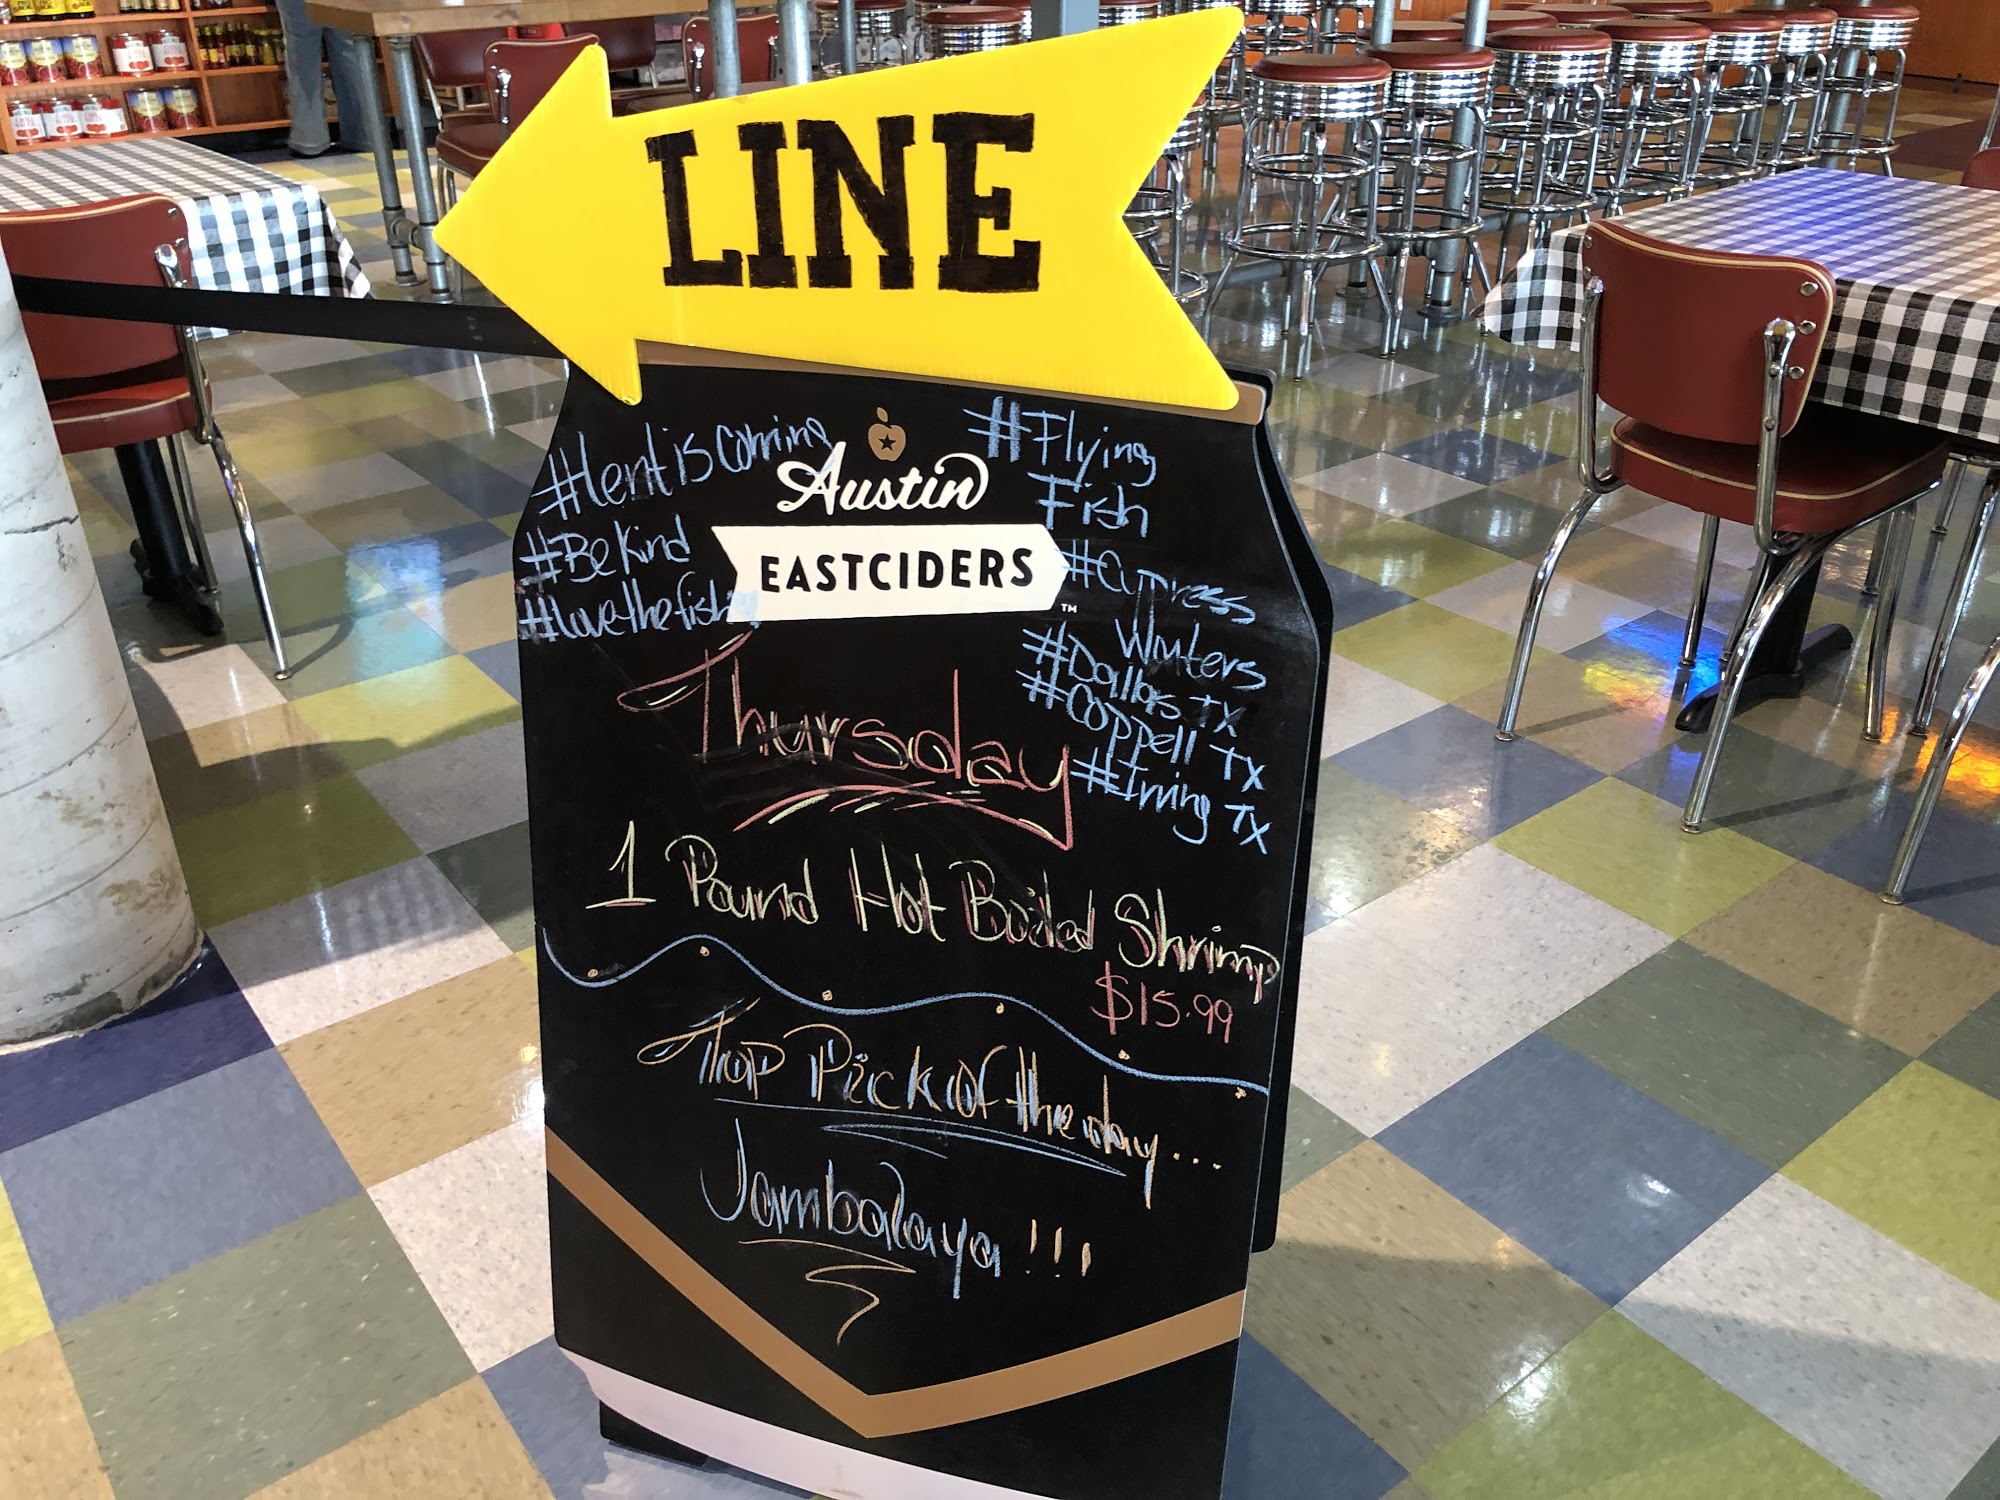 LINE
#lent is coming
#Be Kind
#lovethefish
Austin
EASTCIDERS
TM
#Flying
Fish
#Cypress
Wuters
#Dallas TX
#Coppell TX
#Irving TX
Thursday
1 Pound Hot Boiled Shrimp
$15.99
Top Pick of the day...
Jambalaya!!!